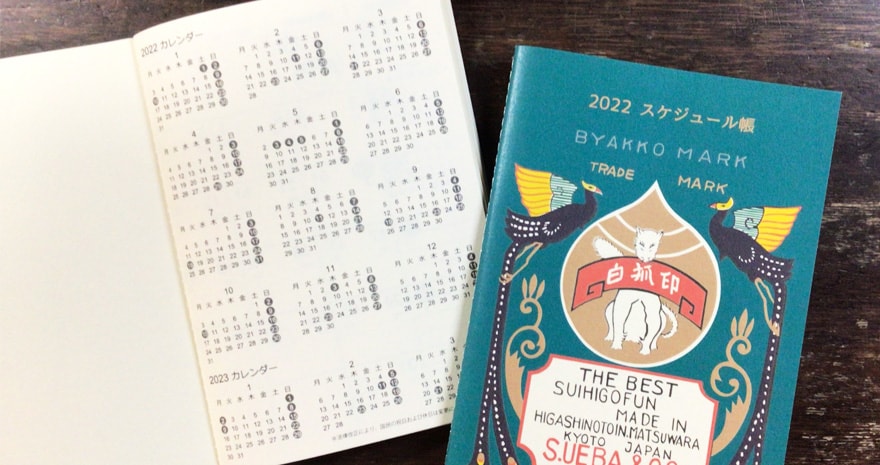 2022 カレンダー
1
月 火 水 木 金 土 日
1 2
3 4 5 6 7 8 9
10 11 12 13 14 15 16
17 18 19 20 21 22 23
24 25 26 27 28 29 30
31
2
月 火 水 木 金 土 日
1 2 3 4 5 6
7 8 9 10 11 12 13
14 15 16 17 18 19 20
21 22 23 24 25 26 27
28
3
月 火 水 木 金 土 日
1 2 3 4 5 6
7 8 9 10 11 12 13
14 15 16 17 18 19 20
21 22 23 24 25 26 27
28 29 30 31
4
月 火 水 木 金 土 日
1 2 3
4 5 6 7 8 9 10
11 12 13 14 15 16 17
18 19 20 21 22 23 24
25 26 27 28 29 30
5
月 火 水 木 金 土 日
1
2 3 4 5 6 7 8
9 10 11 12 13 14 15
16 17 18 19 20 21 22
23 24 25 26 27 28 29
30 31
6
月 火 水 木 金 土 日
1 2 3 4 5
6 7 8 9 10 11 12
13 14 15 16 17 18 19
20 21 22 23 24 25 26
27 28 29 30
7
月 火 水 木 金 土 日
1 2 3
4 5 6 7 8 9 10
11 12 13 14 15 16 17
18 19 20 21 22 23 24
25 26 27 28 29 30 31
8
月 火 水 木 金 土 日
1 2 3 4 5 6 7
8 9 10 11 12 13 14
15 16 17 18 19 20 21
22 23 24 25 26 27 28
29 30 31
9
月 火 水 木 金 土 日
1 2 3 4
5 6 7 8 9 10 11
12 13 14 15 16 17 18
19 20 21 22 23 24 25
26 27 28 29 30
10
月 火 水 木 金 土 日
1 2
3 4 5 6 7 8 9
10 11 12 13 14 15 16
17 18 19 20 21 22 23
24 25 26 27 28 29 30
31
11
月 火 水 木 金 土 日
1 2 3 4 5 6
7 8 9 10 11 12 13
14 15 16 17 18 19 20
21 22 23 24 25 26 27
28 29 30
12
月 火 水 木 金 土 日
1 2 3 4
5 6 7 8 9 10 11
12 13 14 15 16 17 18
19 20 21 22 23 24 25
26 27 28 29 30 31
2023 カレンダー
1
月 火 水 木 金 土 日
1
2 3 4 5 6 7 8
9 10 11 12 13 14 15
16 17 18 19 20 21 22
23 24 25 26 27 28 29
30 31
2
月 火 水 木 金 土 日
1 2 3 4 5
6 7 8 9 10 11 12
13 14 15 16 17 18 19
20 21 22 23 24 25 26
27 28
3
月 火 水 木
※法律改正により、国民の祝日および休日は変更に
2022 スケジュール帳
BYAKKO MARK
TRADE MARK
白狐印
THE BEST
SUIHIGOFUN
MADE IN
HIGASHINOTOIN.MATSUWARA
KYOTO JAPAN
S.UEBA & CO